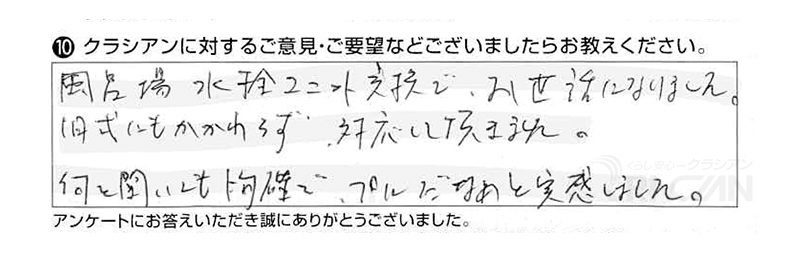 ⑩ クラシアンに対するご意見・ご要望などございましたらお教えください。
風呂場 水栓ユニット交換で、お世話になりました。
旧式にもかかわらず、対応して頂きました。
何を聞いても的確で、プロだなぁと実感しました。
アンケートにお答えいただき誠にありがとうございました。
くらしあんしんクラシアン